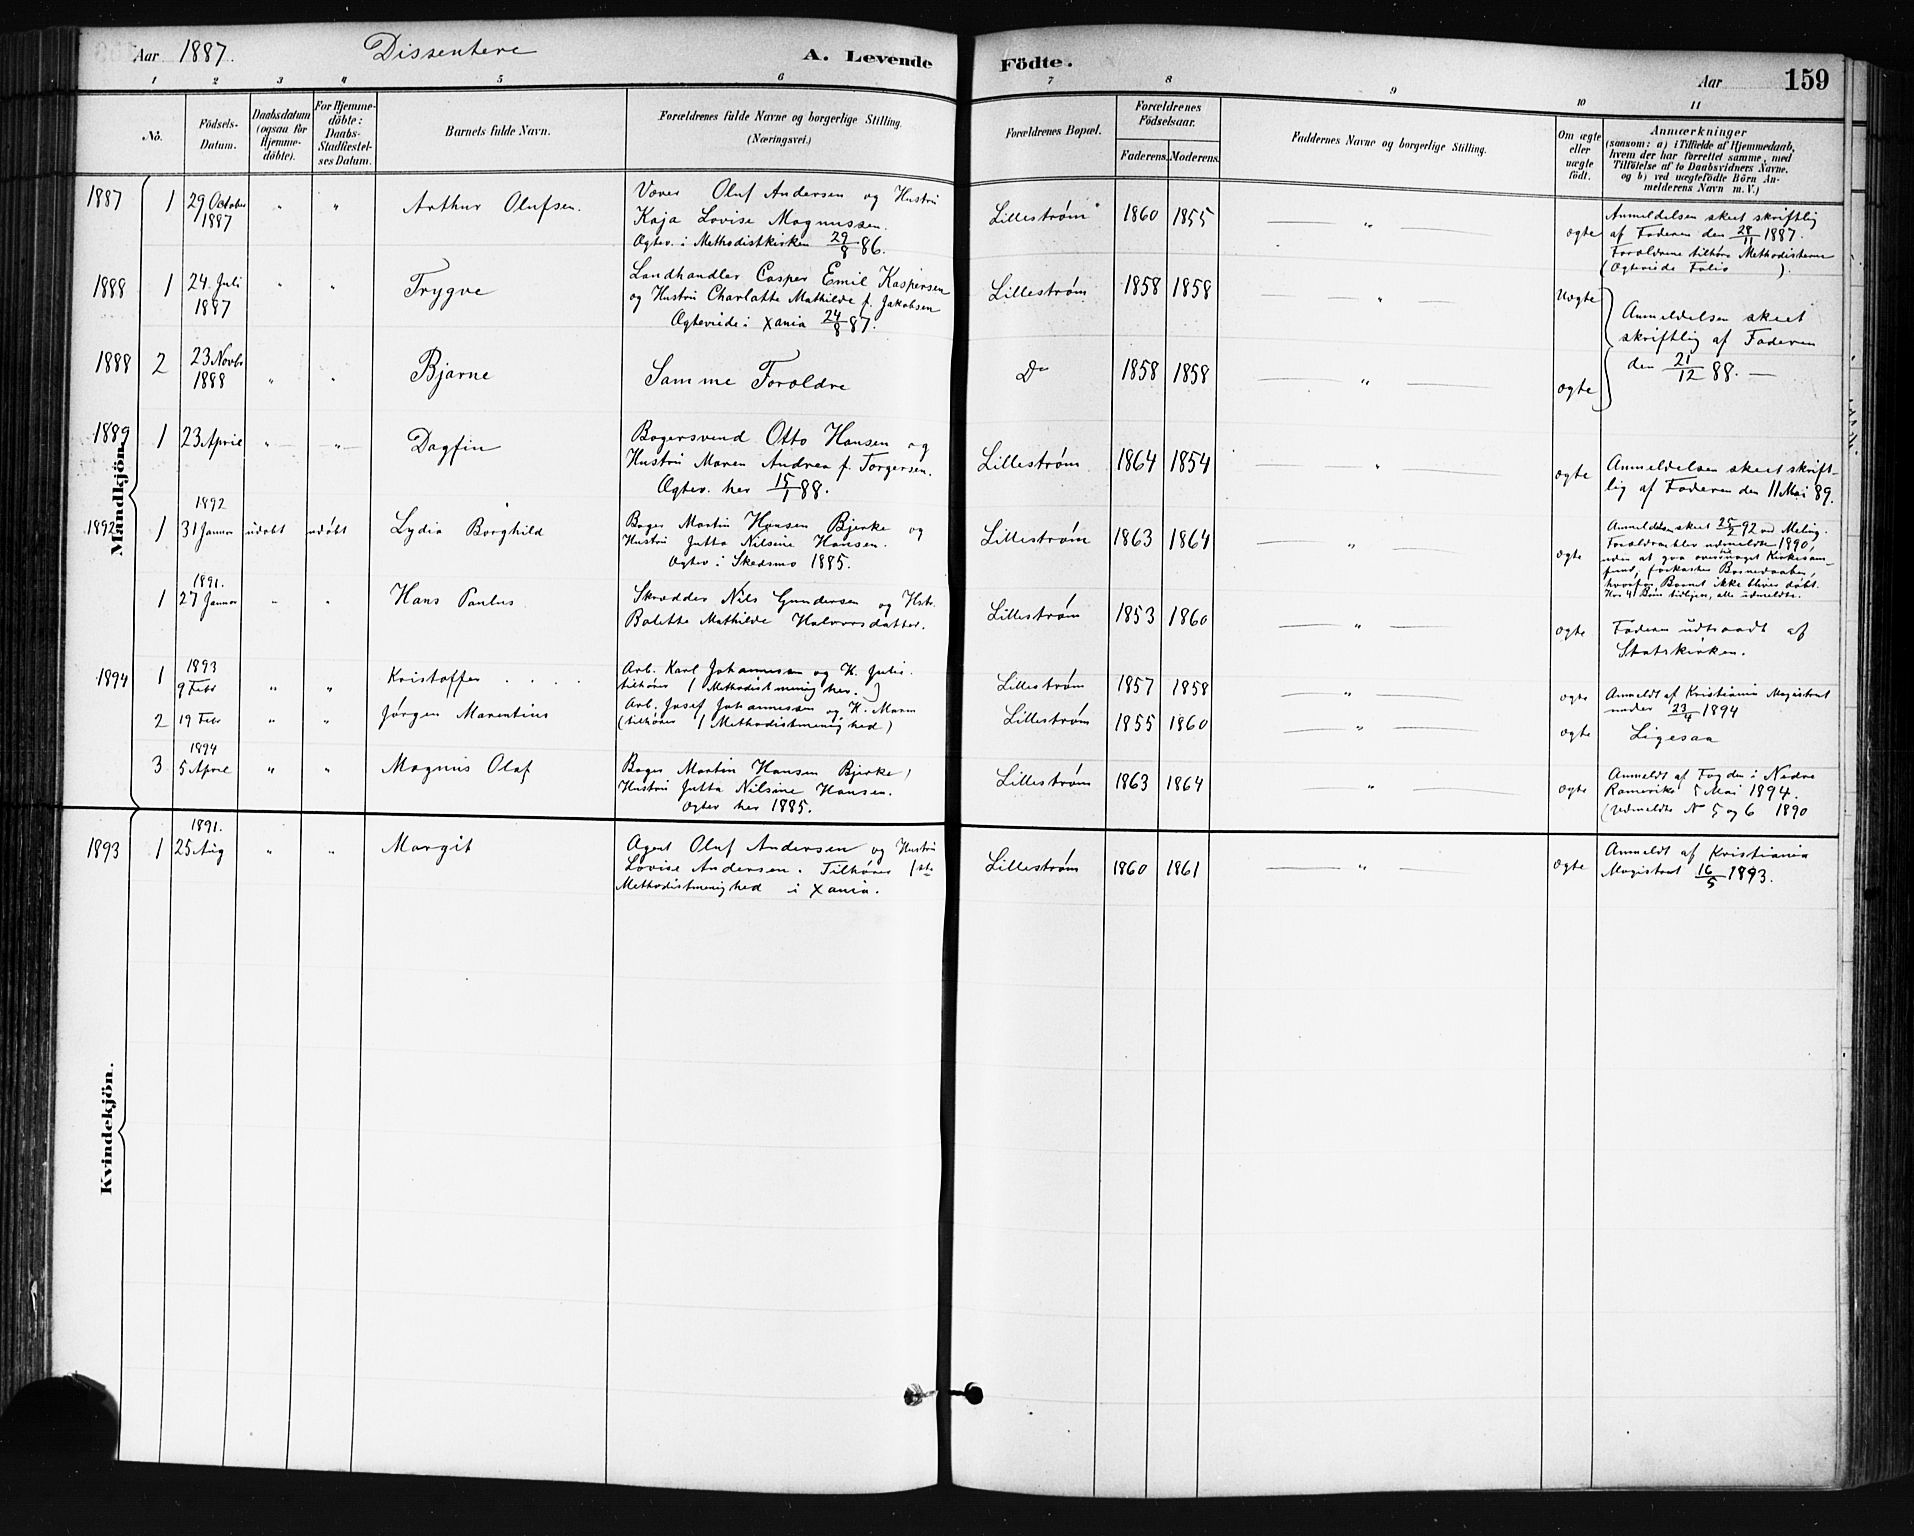 Aar 1887. Dissentere A. Levende Födte. Aar 159
1 2 3 4 5 6 7 8 9 10 11
No.
Födsels-
Datum.
Daabsdatum
(ogsaa for
Hjemme-
döbte).
For Hjemme-
döbte:
Daabs-
Stadfæstel-
ses Datum.
Barnets fulde Navn.
Forældrenes fulde Navne og borgerlige Stilling.
(Næringsvei.)
Forældrenes Bopæl.
Forældrenes
Födselsaar.
Faderens. Moderens.
Faddernes Navne og borgerlige Stilling.
Om ægte
eller
uægte
födt.
Anmærkninger
(saasom: a) i Tilfælde af Hjemmedaab,
hvem der har forrettet samme, med
Tilföielse af to Daabsvidners Navne,
og b) ved uægtefödte Börn An-
melderens Navn m. V.)
Mandkjön.
1887 1 29 October
1887
" "
Arthur Olufsen.
Væver Oluf Andersen og Hustru
Kaja Lovise Magnussen.
Ægtev. i Methodistkirken 29/8 86.
Lillestrøm 1860 1855 " ægte
Anmeldelsen skeet skriftlig
af Faderen den 28/11 1887.
Forældrene tilhøre Methodisterne
(Ægteviede Folio ).
1888 1 24 Juli
1887
" "
Trygve
Landhandler Casper Emil Kaspersen
og Hustru Charlotte Mathilde f. Jakobsen
Ægteviede i Xania 24/8 87.
Lillestrøm 1858 1858 " Uægte
Anmeldelsen skeet
skriftlig af Faderen
den 21/12 88. —
1888 2 23 Novbr
1888
" "
Bjarne
Samme Forældre
Do 1858 1858 " ægte
1889 1 23 April " "
Dagfin
Bagersvend Otto Hansen og
Hustru Maren Andrea f. Torgersen.
Ægtev. her 15/1 88.
Lillestrøm 1864 1854 " ægte
Anmeldelsen skeet skrift-
lig af Faderen den 11 Mai 89.
1892 1 1892
31 Januar udøbt udøbt
Lydia Borghild
Bager Martin Hansen Bjerke og
Hustru Jutta Nilsine Hansen.
Ægtev. i Skedsmo 1885.
Lillestrøm 1863 1864 " ægte
Anmeldelsen skeet 25/2 92
Forældrene blev udmeldte 1890,
uden at gaa over i noget Kirkesam-
fund, forkaster Barnedaaben,
hvorfor Barnet ikke bliver døbt.
Har 4 Børn tidligere, alle udmeldte.
1 1891.
27 Januar " "
Hans Paulus
Skrædder Nils Gundersen og Hstr.
Bolette Mathilde Halvorsdatter.
Lillestrøm 1853 1860 " ægte
Faderen udtraadt af
Statskirken.
1894 1 1893
9 Febr " "
Kristoffer . . . .
Arb. Karl Johannessen og H. Julie.
tilhører (Methodistmenig her.)
Lillestrøm 1857 1858 " ægte
Anmeldt af Kristiania Magistrat
under 23/4 1894
2 19 Febr " "
Jørgen Marentius
Arb. Josef Johannessen og H. Maren
(tilhører (Methodistmenighed)
Lillestrøm 1855 1860 " ægte
Ligesaa
3 1894
5 April " "
Magnus Olaf
Bager Martin Hansen Bjerke,
Hustru Jutta Nilsine Hansen.
Ægtev her 1885.
Lillestrøm 1863 1864 " ægte
Anmeldt af Fogden i Nedre
Romerike 5 Mai 1894.
(Udmeldte N 5 og 6 1890
Kvindekjön.
1893 1 1891.
25 Aug " "
Margit
Agent Oluf Andersen og Hustru
Lovise Andersen. Tilhører 1ste
Methodistmenighed i Xania.
Lillestrøm 1860 1861 " ægte
Anmeldt af Kristiania
Magistrat 16/5 1893.